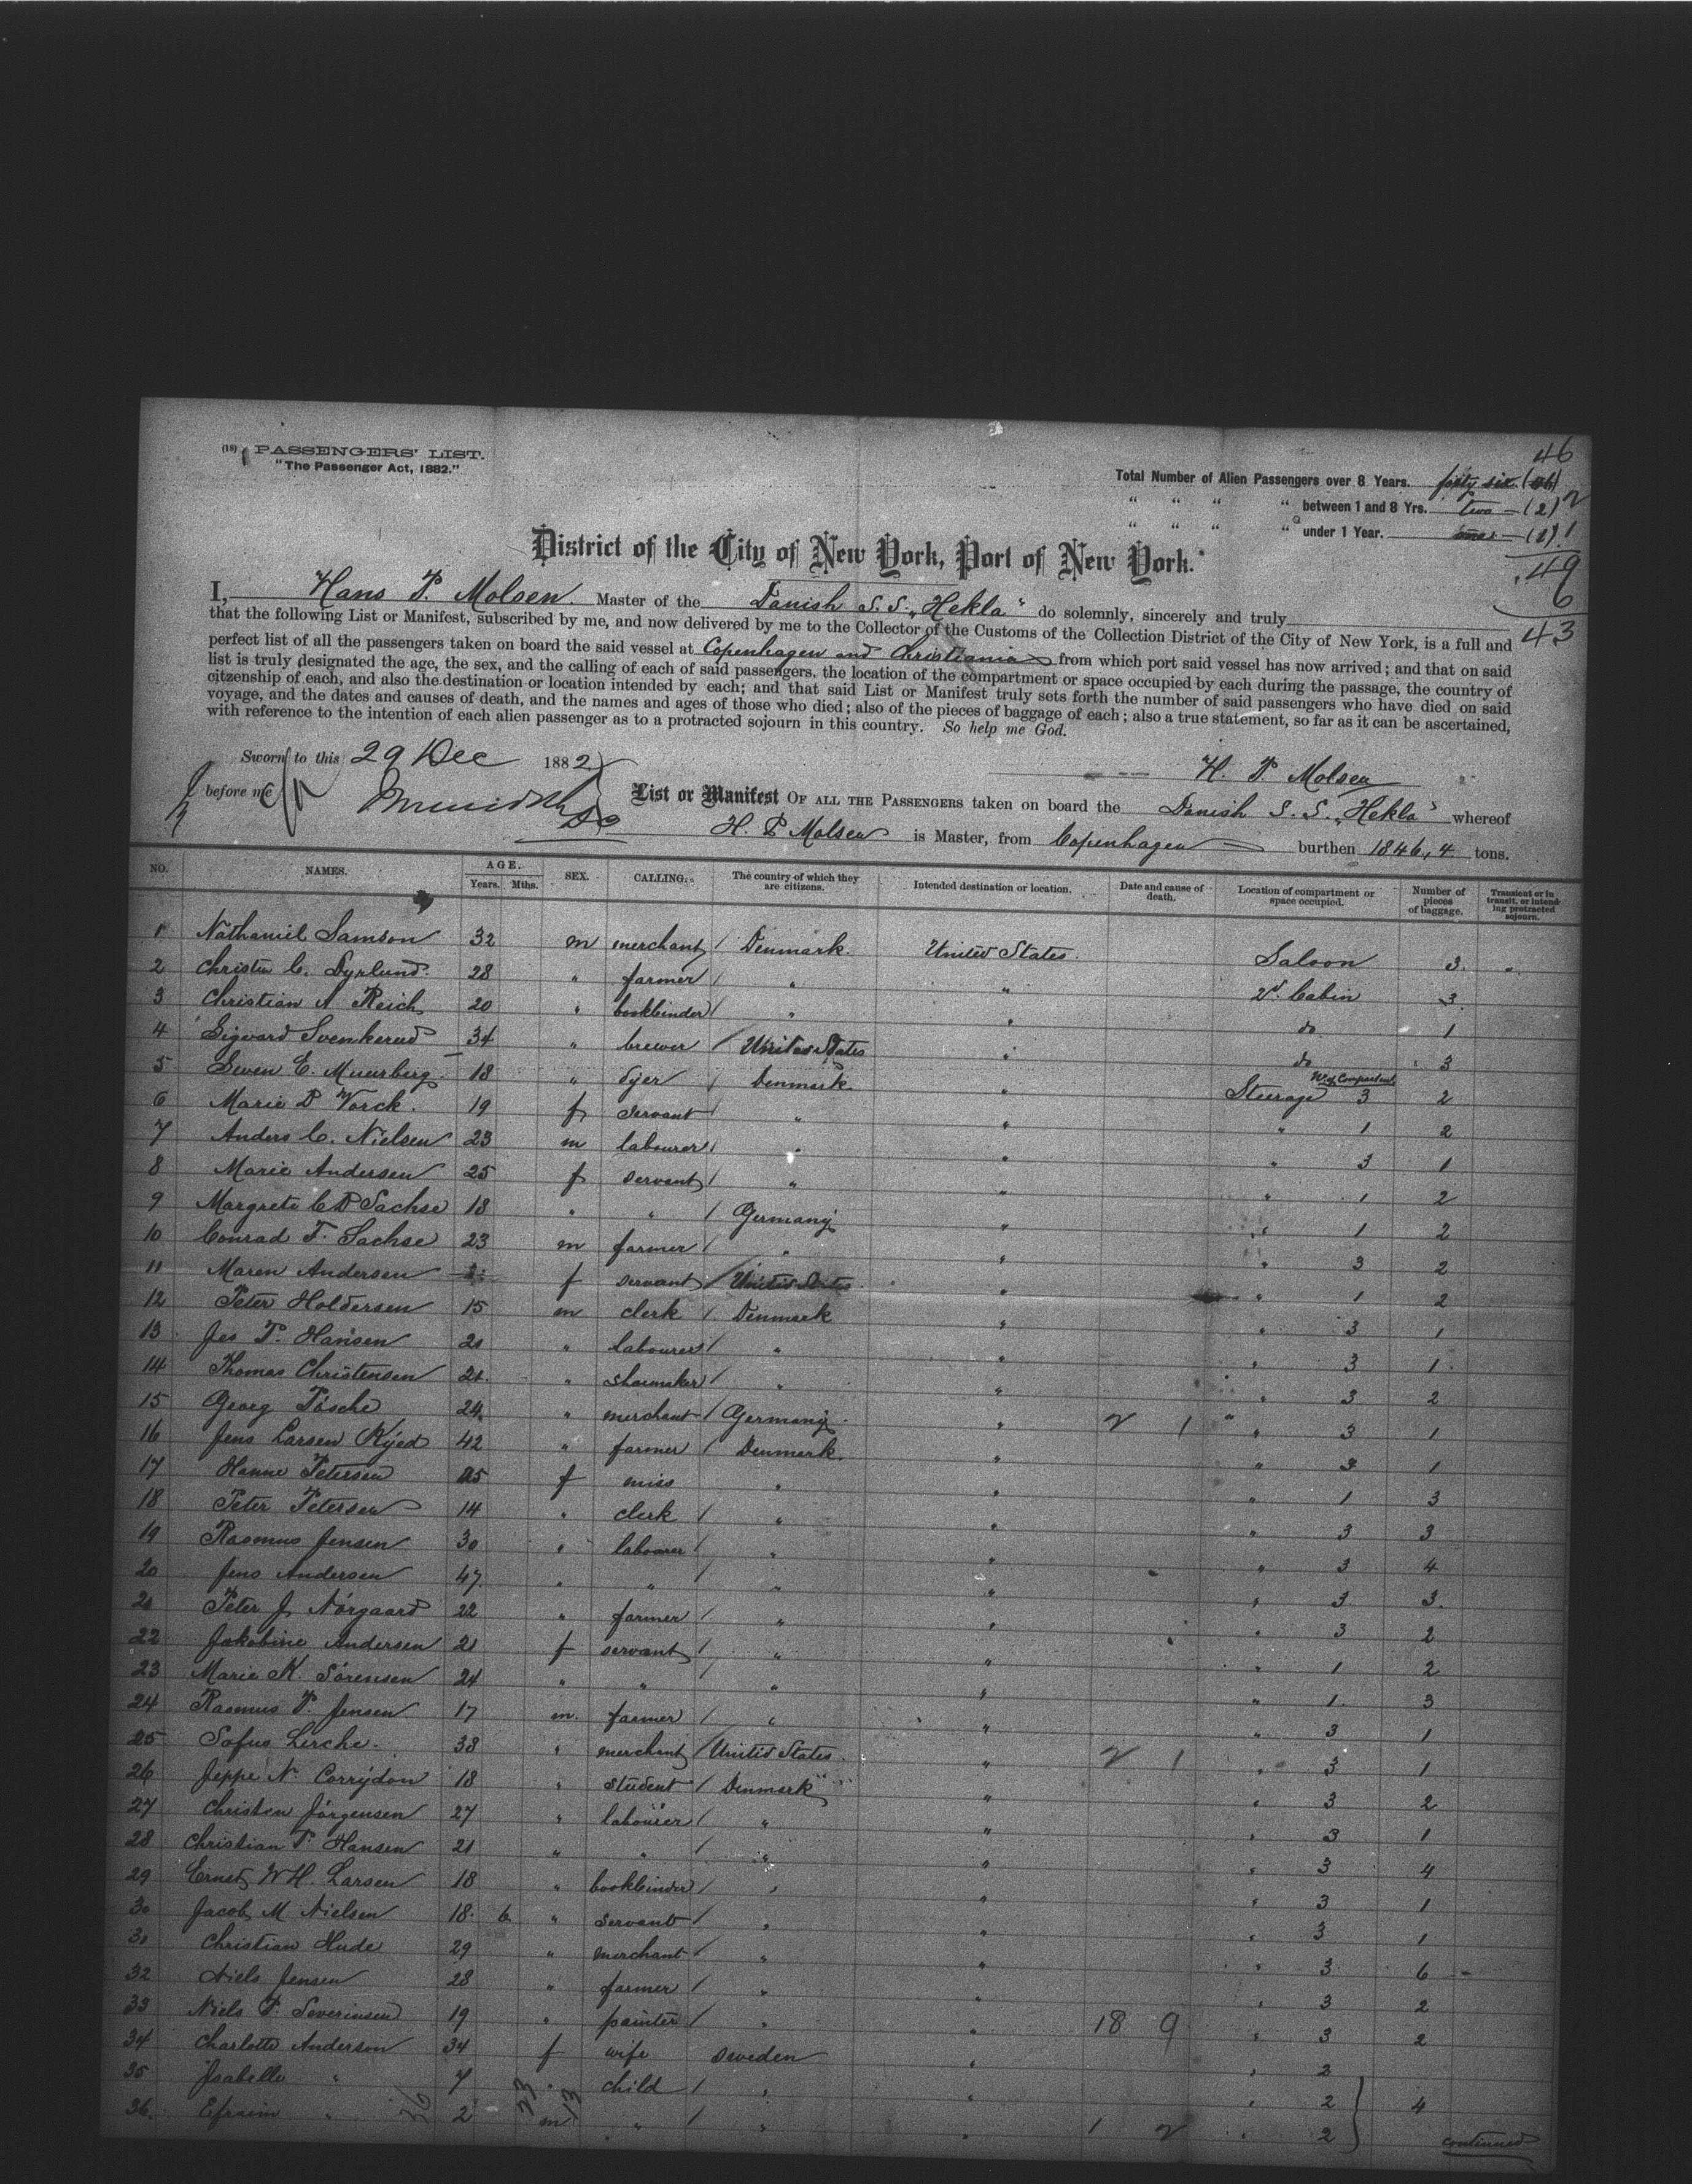 46
(18) PASSENGERS' LIST.
"The Passenger Act, 1882."
Total Number of Alien Passengers over 8 Years. forty six (46)
" " " " between 1 and 8 Yrs. two - (2) 2
" " " " under 1 Year. 1
49
6
43
District of the City of New York, Port of New York.
I, Hans P. Molsen Master of the Danish S.S. „Hekla" do solemnly, sincerely and truly
that the following List or Manifest, subscribed by me, and now delivered by me to the Collector of the Customs of the Collection District of the City of New York, is a full and
perfect list of all the passengers taken on board the said vessel at Copenhagen and Christiania from which port said vessel has now arrived; and that on said
list is truly designated the age, the sex, and the calling of each of said passengers, the location of the compartment or space occupied by each during the passage, the country of
citzenship of each, and also the destination or location intended by each; and that said List or Manifest truly sets forth the number of said passengers who have died on said
voyage, and the dates and causes of death, and the names and ages of those who died; also of the pieces of baggage of each; also a true statement, so far as it can be ascertained,
with reference to the intention of each alien passenger as to a protracted sojourn in this country. So help me God.
Sworn to this 29 Dec 1882
H. P. Molsen
before me
List or Manifest OF ALL THE PASSENGERS taken on board the Danish S. S. „Hekla" whereof
H. P Molsen is Master, from Copenhagen burthen 1846,4 tons.
NO. NAMES. AGE. Years. Mths. SEX. CALLING. The country of which they are citizens. Intended destination or location. Date and cause of death. Location of compartment or space occupied. Number of pieces of baggage. Transient or in transit, or intending protracted sojourn.
1 Nathaniel Samson 32 m merchant / Denmark. United States. Saloon 3. "
2 Christen C. Dyrlund. 28 " farmer / " " 2d. Cabin 3
3 Christian A Reich 20 " bookbinder / " " do 1
4 Sigvard Svenkerud 34 " brewer / United States " do 3
5 Swen E. Muurberg 18 " dyer / Denmark " Steerage No. of Compartment 3 2
6 Marie P Vorck. 19 f servant / " " " 1 2
7 Anders C. Nielsen 23 m labourer / " " " 3 1
8 Marie Andersen 25 f servant / " " " 1 2
9 Margrete C D Sachse 18 " " / Germany " " 1 2
10 Conrad F. Sachse 23 m farmer / " " " 3 2
11 Maren Andersen f servant / United States " " 1 2
12 Peter Holdersen 15 m clerk / Denmark " " 3 1
13 Jes P. Hansen 21 " labourer / " " " 3 1
14 Thomas Christensen 21 " shoemaker / " " " 3 2
15 Georg Täsche 24 " merchant / Germany " 2 1 " 3 1
16 Jens Larsen Kyed 42 " farmer / Denmark " " 3 1
17 Hanne Petersen 25 f miss " " " 1 3
18 Peter Petersen 14 " clerk / " " " 3 3
19 Rasmus Jensen 30 " labourer / " " " 3 4
20 Jens Andersen 47 " " / " " " 3 3.
21 Peter J. Nørgaard 22 " farmer / " " " 3 2
22 Jakobine Andersen 21 f servant / " " " 1 2
23 Marie K. Sørensen 24 " " / " " " 1 3
24 Rasmus P. Jensen 17 m. farmer / " " " 3 1
25 Sofus Lerche. 38 " merchant / United States " 2 1 " 3 1
26 Jeppe N. Corrydon 18 " student / Denmark " " 3 2
27 Christen Jørgensen 27 " labourer / " " " 3 1
28 Christian P. Hansen 21 " " / " " " 3 4
29 Ernst W H. Larsen 18 " bookbinder / " " " 3 1
30 Jacob M Nielsen 18. 6 " servant / " " " 3 1
31 Christian Hude 29 " merchant / " " " 3 6
32 Niels Jensen 28 " farmer / " " " 3 2
33 Niels P. Severinsen 19 " painter / " " 18 9 " 3 2
34 Charlotte Anderson 34 f wife Sweden " " 2
35 Isabelle " 7 " child / " " " 2 4
36. Efraim " 2 m " / " " 1 2 " 2
36 23 13
continued